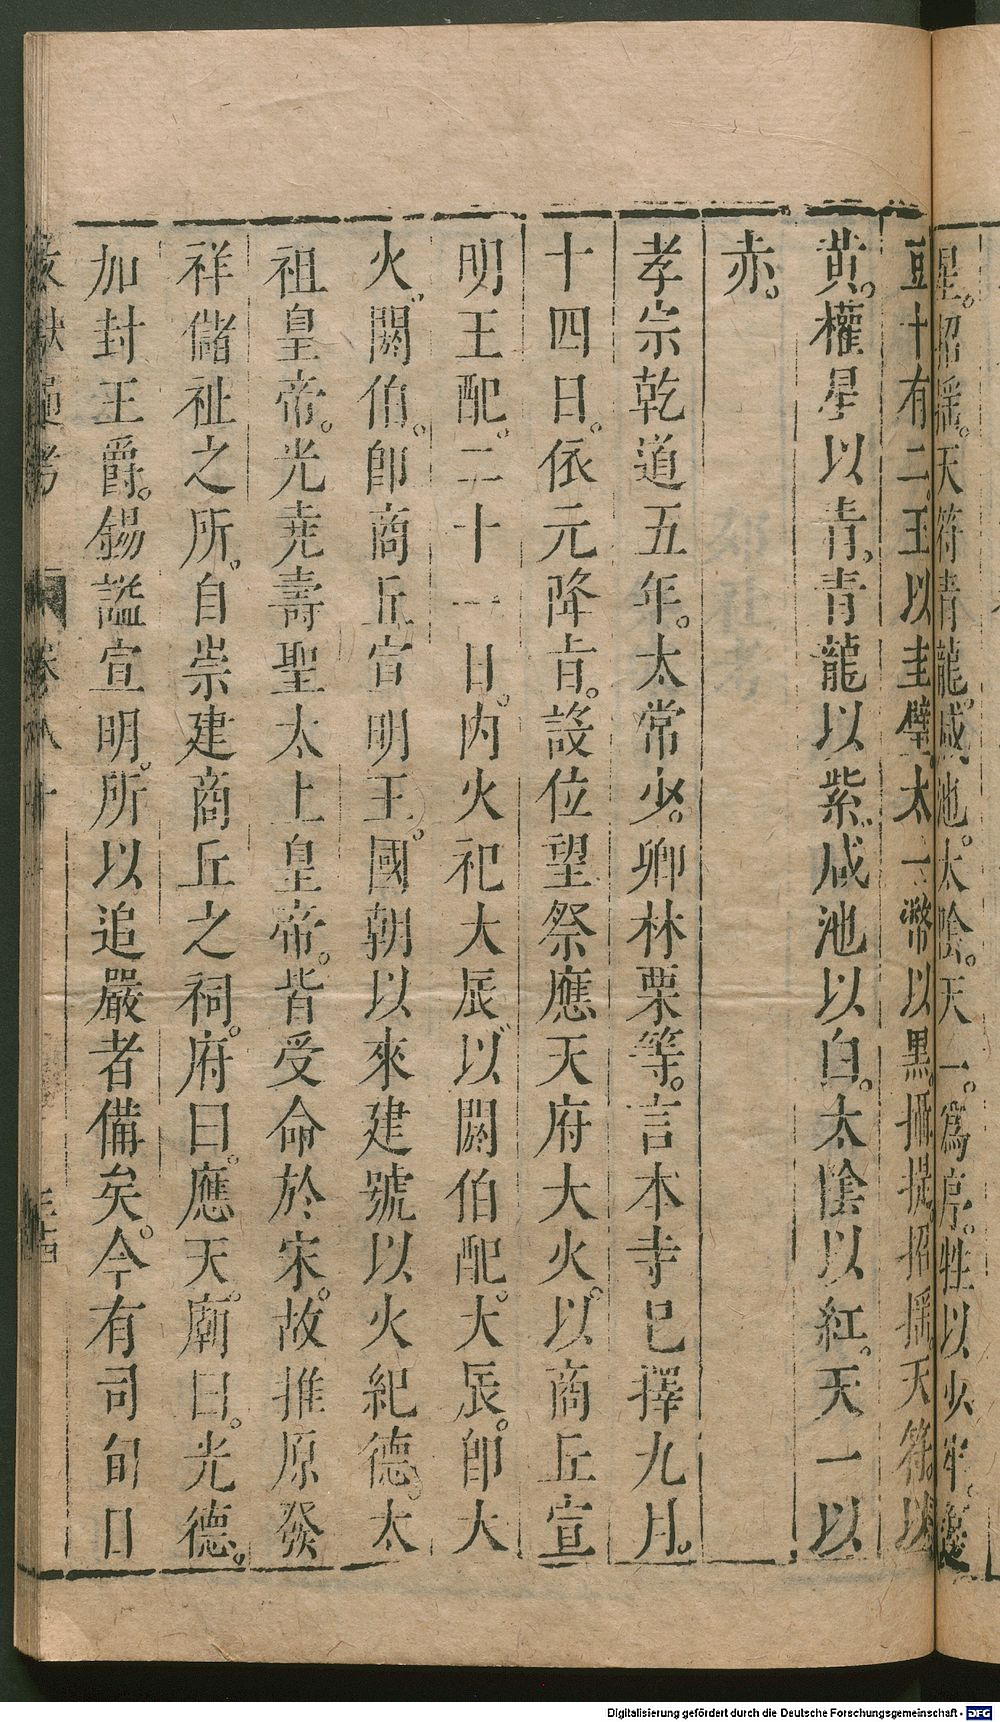 星。招搖。天符青龍。咸池。太陰。天一。爲序。牲以少牢。籩
豆十有二。玉以圭璧。太一幣以黑。攝提招搖天符。以
黃。權星以青。青龍以紫。咸池以白。太陰以紅。天一以
赤。
孝宗乾道五年。太常少。卿林栗等。言本寺已擇九月。
十四日。依元降旨。設位望祭應天府大火。以商丘宣
明王配。二十一日。內火祀大辰。以閼伯配。大辰。卽大
火。閼伯。卽商丘宣明王。國朝以來建號以火紀德。太
祖皇帝。光堯壽聖太上皇帝。皆受命於宋。故推原發
祥儲祉之所。自崇建商丘之祠。府曰。應天。廟曰。光德。
加封王爵。錫諡宣明。所以追嚴者備矣。今有司旬日
文獻通考 卷八十